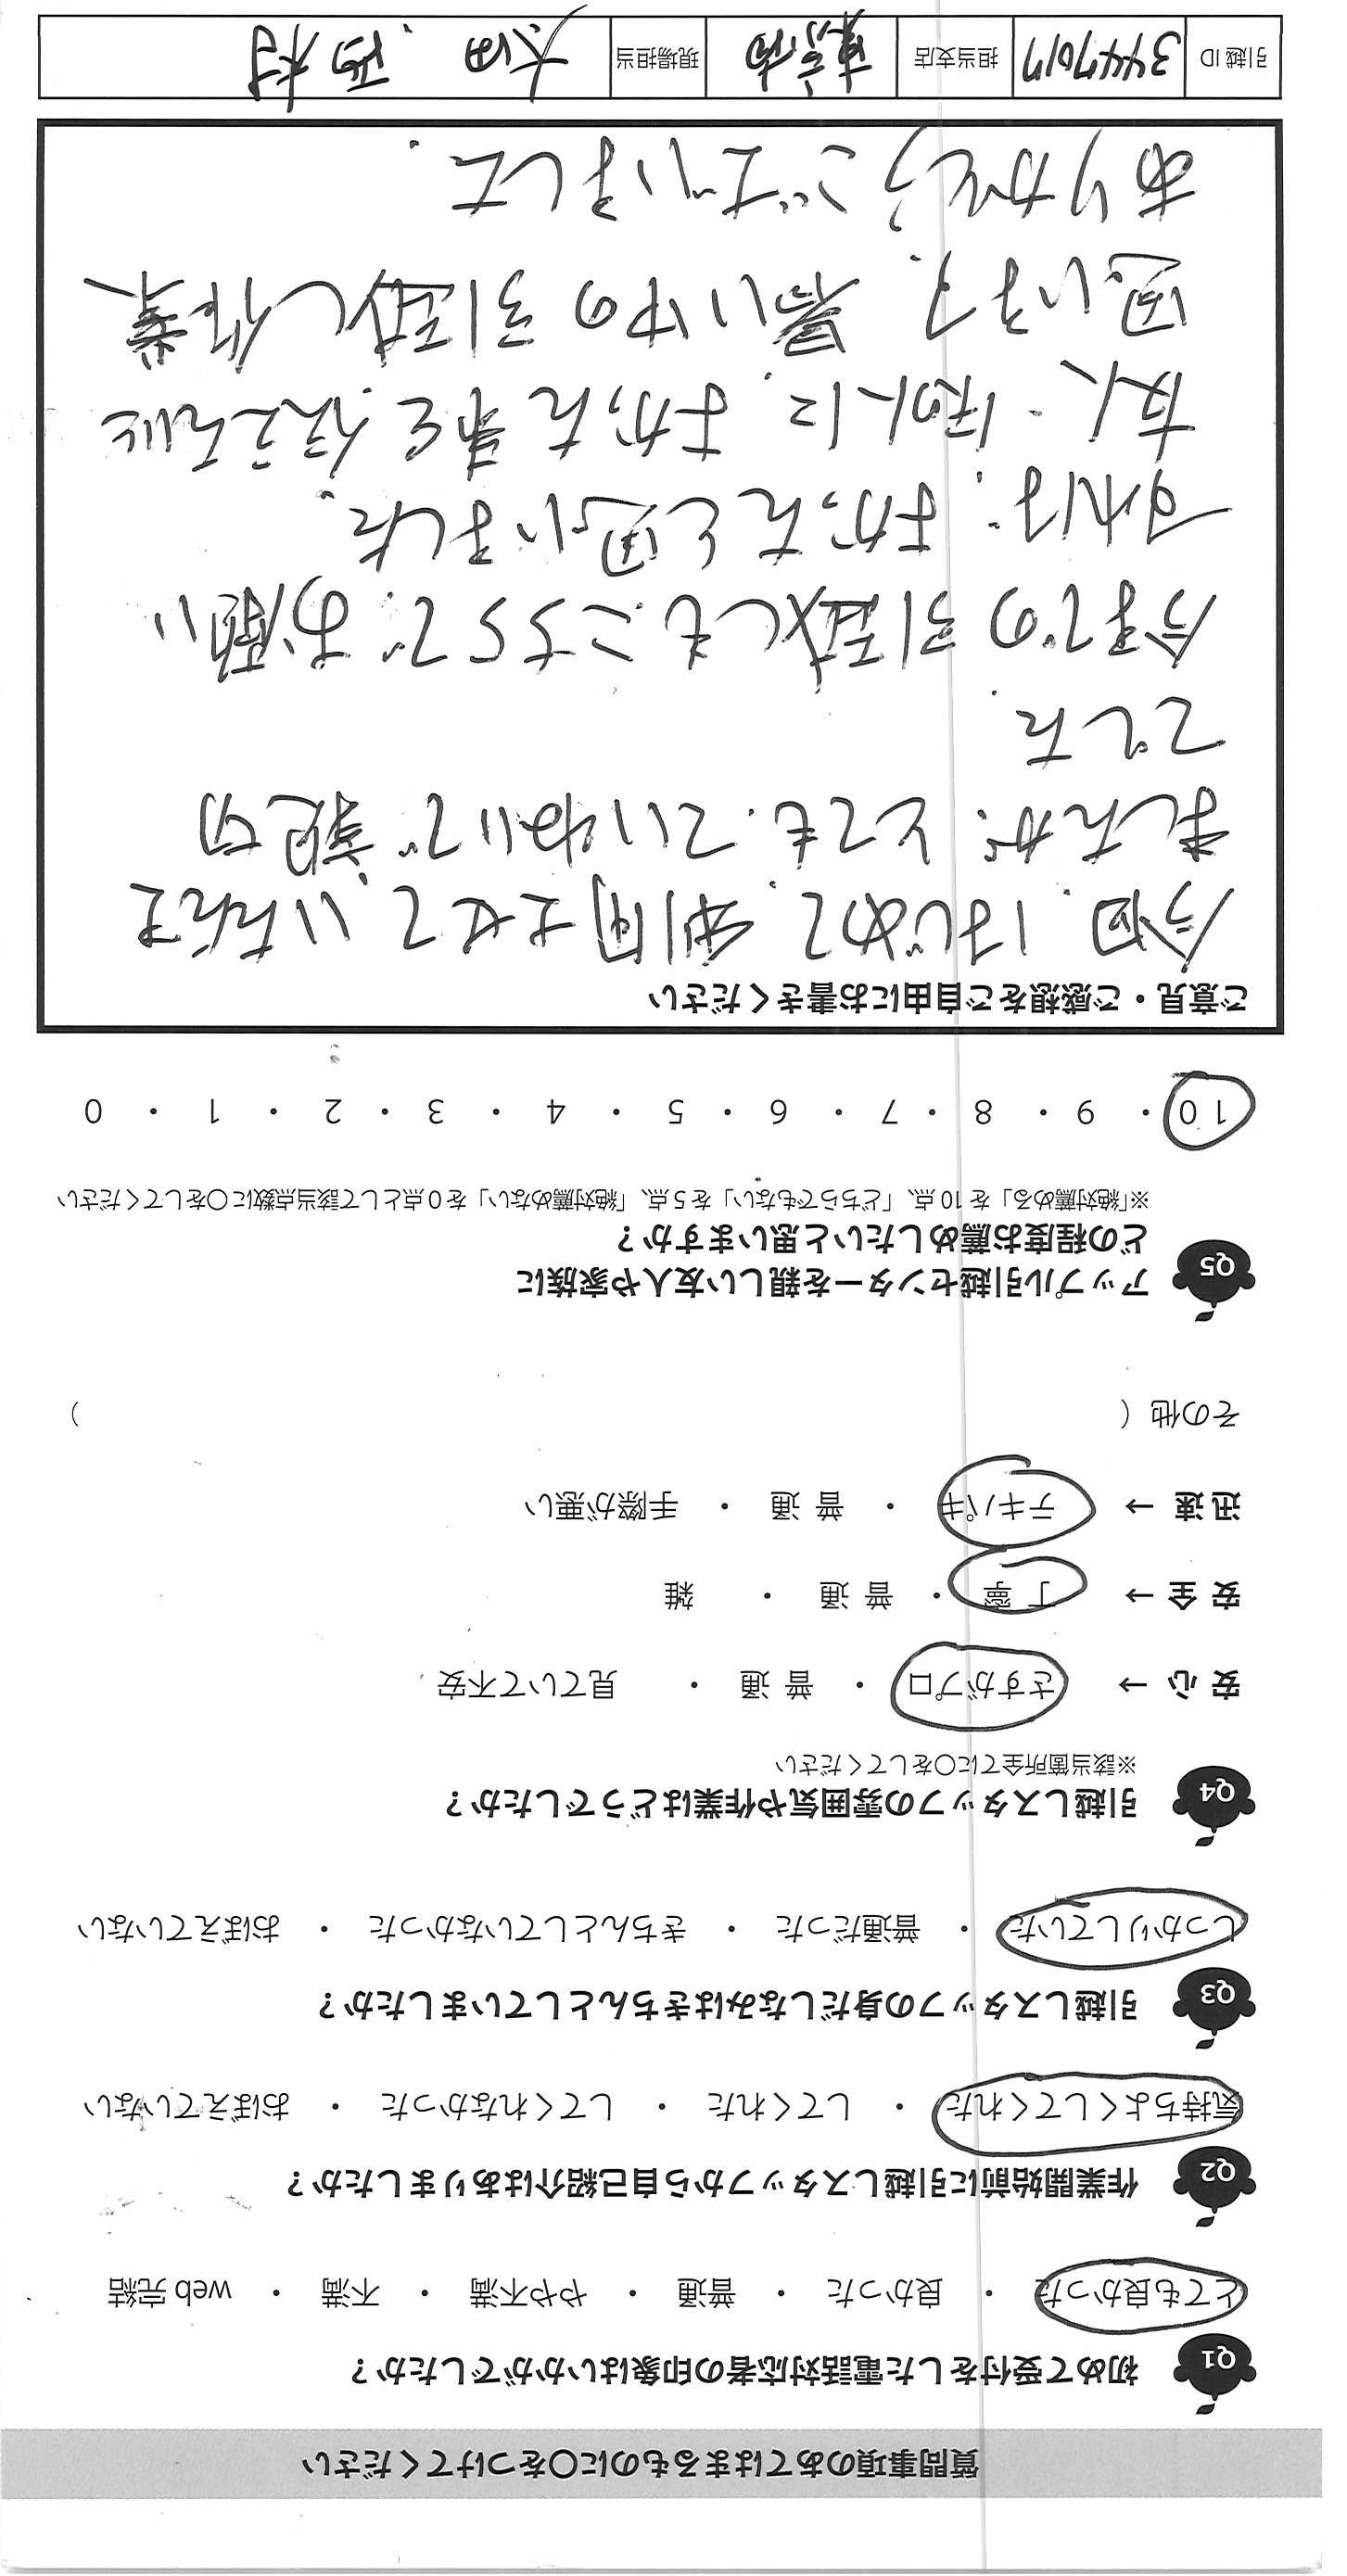 質問事項のあてはまるものに〇をつけてください
Q1 初めて受付をした電話対応者の印象はいかがでしたか？
とても良かった ・ 良かった ・ 普通 ・ やや不満 ・ 不満 ・ web 完結
Q2 作業開始前に引越しスタッフから自己紹介はありましたか？
気持ちよくしてくれた ・ してくれた ・ してくれなかった ・ おぼえていない
Q3 引越しスタッフの身だしなみはきちんとしていましたか？
しっかりしていた ・ 普通だった ・ きちんとしていなかった ・ おぼえていない
Q4 引越しスタッフの雰囲気や作業はどうでしたか？
※該当箇所全てに〇をしてください
安 心 → さすがプロ ・ 普 通 ・ 見ていて不安
安 全 → 丁 寧 ・ 普 通 ・ 雑
迅 速 → テキパキ ・ 普 通 ・ 手際が悪い
その他（ ）
Q5 アップル引越センターを親しい友人や家族に
どの程度お薦めしたいと思いますか？
※「絶対薦める」を 10 点、「どちらでもない」を 5 点、「絶対薦めない」を 0 点として該当点数に〇をしてください
10 ・ 9 ・ 8 ・ 7 ・ 6 ・ 5 ・ 4 ・ 3 ・ 2 ・ 1 ・ 0
ご意見・ご感想をご自由にお書きください
今回、はじめて利用させていただき
ましたが、とても、ていねいで親切
でした。
今までの引越しもこちらでお願い
すれば、よかったと思いました。
友人・知人に、よかった事を伝えたいと
思います。暑い中の引越し作業、
ありがとうございました。
引越 ID 3447017 担当支店 東京南 現場担当 太田、西村